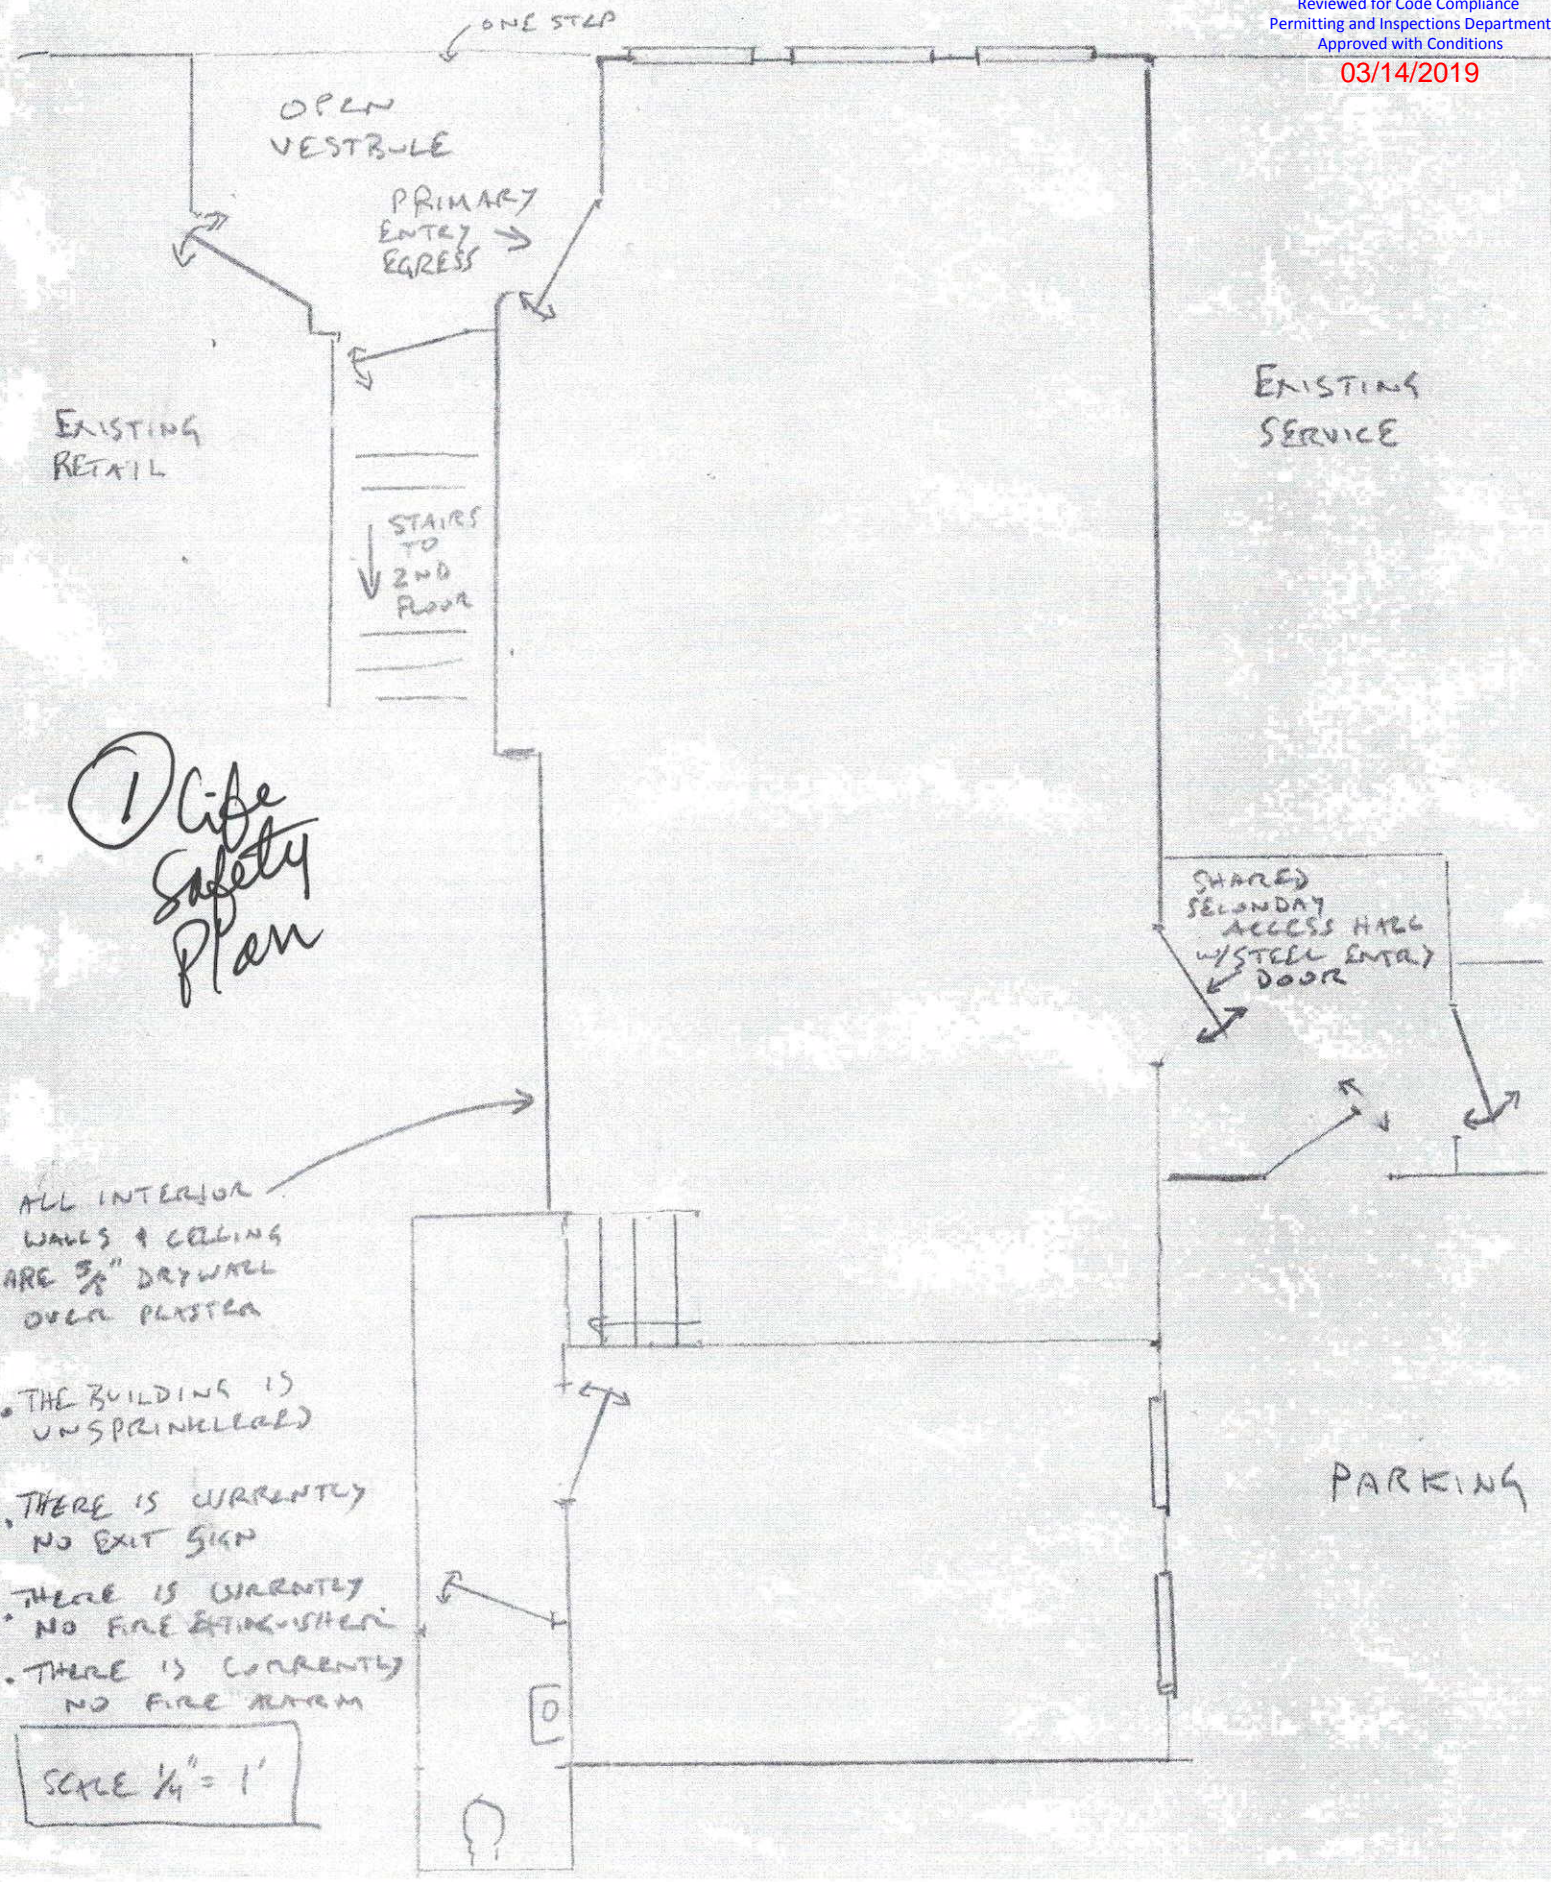 Reviewed for Code Compliance
Permitting and Inspections Department
Approved with Conditions
03/14/2019
ONE STEP
OPEN
VESTBULE
PRIMARY
ENTRY
EGRESS
EXISTING
RETAIL
EXISTING
SERVICE
STAIRS
TO
2ND
FLOOR
1 Life
Safety
Plan
SHARED
SECONDAY
ACCESS HALL
W/STEEL ENTRY
DOOR
ALL INTERIOR
WALLS & CEILING
ARE 5/8" DRYWALL
OVER PLASTER
• THE BUILDING IS
UNSPRINKLERED
• THERE IS CURRENTLY
NO EXIT SIGN
• THERE IS CURRENTLY
NO FIRE EXTINGUISHER
• THERE IS CURRENTLY
NO FIRE ALARM
PARKING
SCALE 1/4" = 1'